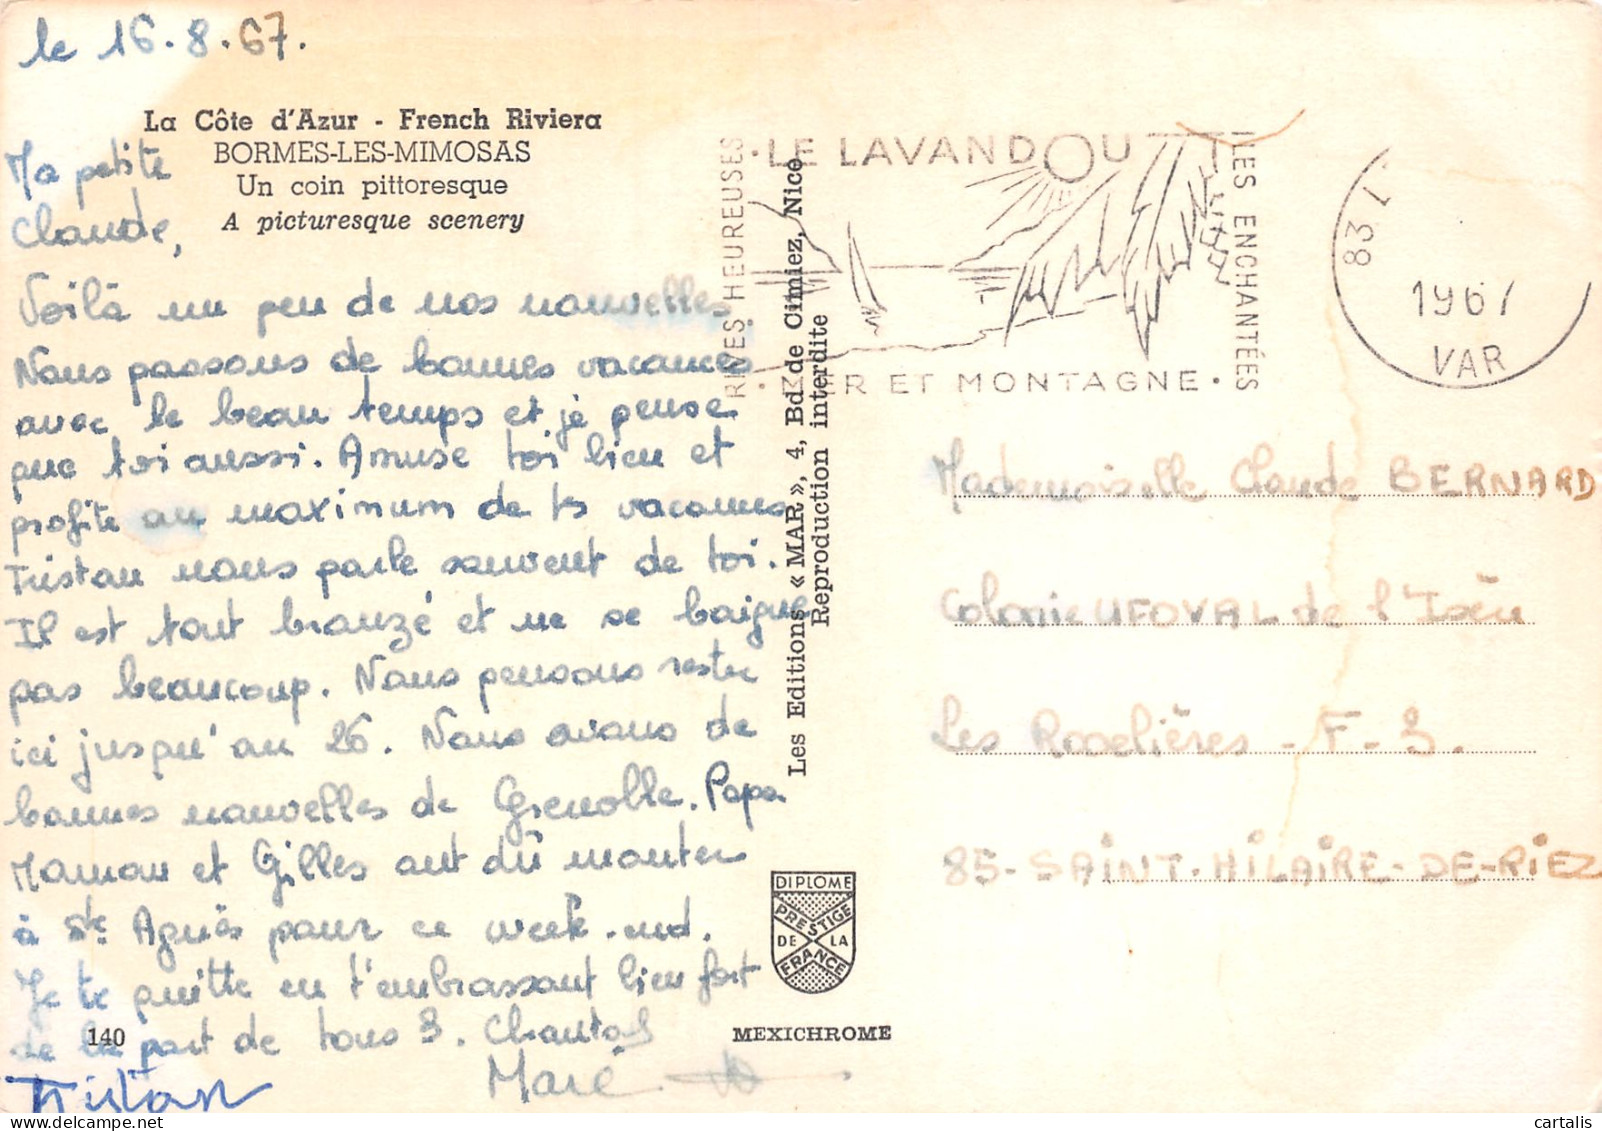 le 16.8.67.
La Côte d'Azur - French Riviera
BORMES-LES-MIMOSAS
Un coin pittoresque
A picturesque scenery
Ma petite
Claude,
Voilà un peu de nos nouvelles
Nous passons de bonnes vacances
avec le beau temps et je pense
que toi aussi. Amuse toi bien et
profite au maximum de ts vacances
Tristan nous parle souvent de toi.
Il est tout bronzé et ne se baigne
pas beaucoup. Nous pensons rester
ici jusqu'au 26. Nous avons de
bonnes nouvelles de Grenoble. Papa
Maman et Gilles ont dû monter
à Ste Agnès pour ce week-end.
Je te quitte en t'embrassant bien fort
de la part de tous 3. Chantal
Tristan
140
Les Editions « MAR », 4, Bd de Cimiez, Nice
Reproduction interdite
RIVES HEUREUSES
· LE LAVANDOU
ILES ENCHANTÉES
· MER ET MONTAGNE ·
83
1967
VAR
Mademoiselle Claude BERNARD
Colonie UFOVAL de l'Isère
Les Roselières - F-3.
85-SAINT-HILAIRE-DE-RIEZ
DIPLOME
PRESTIGE
DE LA
FRANCE
MEXICHROME
cartalis